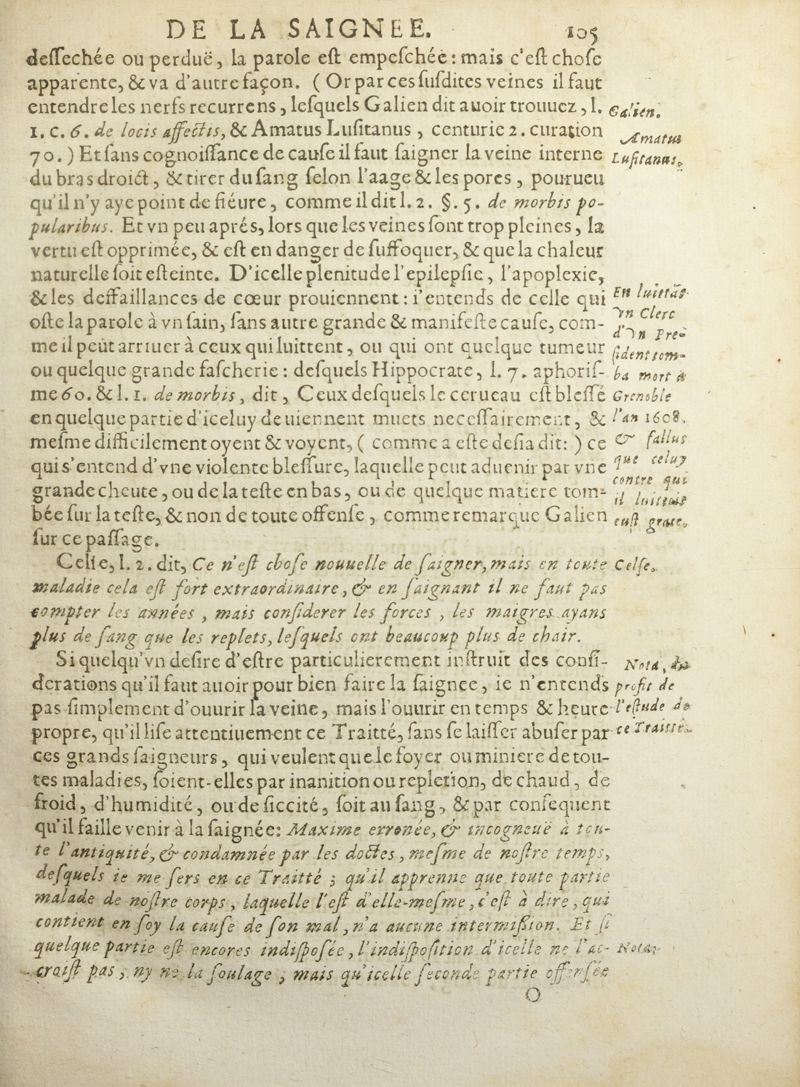 DE LA SAIGNEE. 105
deſſechée ou perduë, la parole eſt empeſchée : mais c'eſt choſe
apparente, & va d'autre façon. ( Or par ces ſuſdites veines il faut
entendre les nerfs recurrens, leſquels Galien dit auoir trouuez, l.
1. c. 6. de locis affectis, & Amatus Luſitanus, centurie 2. curation
70. ) Et ſans cognoiſſance de cauſe il faut ſaigner la veine interne
du bras droict, & tirer du ſang ſelon l'aage & les pores, pourueu
qu'il n'y aye point de fiéure, comme il dit l. 2. §. 5. de morbis po-
pularibus. Et vn peu aprés, lors que les veines ſont trop pleines, la
vertu eſt opprimée, & eſt en danger de ſuffoquer, & que la chaleur
naturelle ſoit eſteinte. D'icelle plenitude l'epilepſie, l'apoplexie,
& les deffaillances de cœur prouiennent : i'entends de celle qui
oſte la parole à vn ſain, ſans autre grande & manifeſte cauſe, com-
me il peut arriuer à ceux qui luittent, ou qui ont quelque tumeur
ou quelque grande faſcherie : deſquels Hippocrate, l. 7. aphoriſ-
me 60. & l. 1. de morbis, dit, Ceux deſquels le cerueau eſt bleſſé
en quelque partie d'iceluy deuiennent muets neceſſairement, &
meſme difficilement oyent & voyent, ( comme a eſté deſia dit : ) ce
qui s'entend d'vne violente bleſſure, laquelle peut aduenir par vne
grande cheute, ou de la teſte en bas, ou de quelque matiere tom-
bée ſur la teſte, & non de toute offenſe, comme remarque Galien
ſur ce paſſage.
Celſe, l. 2. dit, Ce n'eſt choſe nouuelle de ſaigner, mais en toute
maladie cela eſt fort extraordinaire, & en ſaignant il ne faut pas
compter les années, mais conſiderer les forces, les maigres ayans
plus de ſang que les replets, leſquels ont beaucoup plus de chair.
Si quelqu'vn deſire d'eſtre particulierement inſtruit des conſi-
derations qu'il faut auoir pour bien faire la ſaignee, ie n'entends
pas ſimplement d'ouurir la veine, mais l'ouurir en temps & heure
propre, qu'il liſe attentiuement ce Traitté, ſans ſe laiſſer abuſer par
ces grands ſaigneurs, qui veulent que le foyer ou miniere de tou-
tes maladies, ſoient-elles par inanition ou repletion, de chaud, de
froid, d'humidité, ou de ſiccité, ſoit au ſang, & par conſequent
qu'il faille venir à la ſaignée : Maxime erronée, & incogneuë à tou-
te l'antiquité, & condamnée par les doctes, meſme de noſtre temps,
deſquels ie me ſers en ce Traitté ; qu'il apprenne que toute partie
malade de noſtre corps, laquelle l'eſt d'elle-meſme, c'eſt à dire, qui
contient en ſoy la cauſe de ſon mal, n'a aucune intermiſſion. Et ſi
quelque partie eſt encores indiſpoſée, l'indiſpoſition d'icelle ne l'ac-
croiſt pas, ny ne la ſoulage, mais qu'icelle ſeconde partie offenſée
O
Galien.
Amatus
Luſitanus.
En luittāt
vn Clerc
d'vn Pre-
ſident tom-
ba mort à
Grenoble
l'an 1608.
& fallut
que celuy
contre qui
il luittoit
euſt grace.
Celſe.
Nota, du
profit de
l'eſtude de
ce Traitté.
Nota.